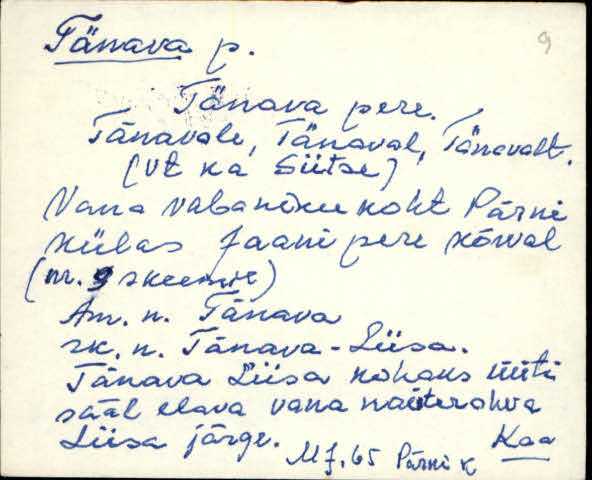 Tänava p.
9
Tänava pere.
Tänavale, Tänaval, Tänavalt.
(vt ka Siitse)
Vana vabaniku koht Pärni
külas Jaani pere kõrval
(nr. 9 skeemil)
Am. n. Tänava
rk. n. Tänava-Liisa.
Tänava Liisa kohaks üiti
sääl elava vana naiterahva
Liisa järge.
Kaa
MJ. 65 Pärni k